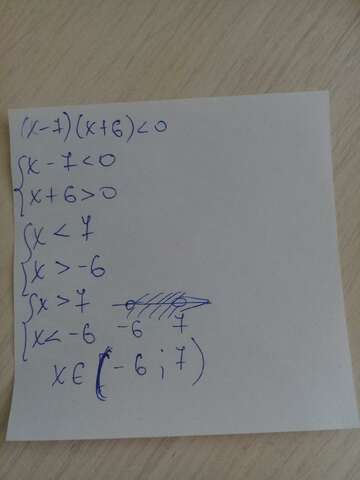 (x-7)(x+6)<0
{x-7<0
{x+6>0
{x<7
{x>-6
{x>7
{x<-6
-6 7
x∈(-6;7)